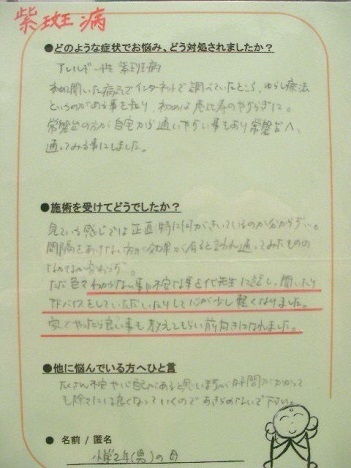 紫斑病
●どのような症状でお悩み、どう対処されましたか？
アレルギー性紫斑病
初めて聞いた病名でインターネットで調べていたところ、ゆらし療法
というのがある事を知り
常盤台の方が自宅から通いやすい事もあり常盤台へ
通ってみる事にしました。
●施術を受けてどうでしたか？
見ている感じでは正直特に何がきいているのか分からず…。
間隔をあけない方が効果が有ると言われ通ってみたものの
なかなか変わらず…。
ただ色々わからない事や不安な事を先生に話し、聞いたり
アドバイスをしていただいたりして心が少し軽くなりました。
家でやったら良い事も教えてもらい前向きになれました。
●他に悩んでいる方へひと言
たくさん不安や心配があると思いますが、時間がかかって
も必ず良くなっていくのであきらめないで下さい。
● 名前 / 匿名
小学2年(男)の母